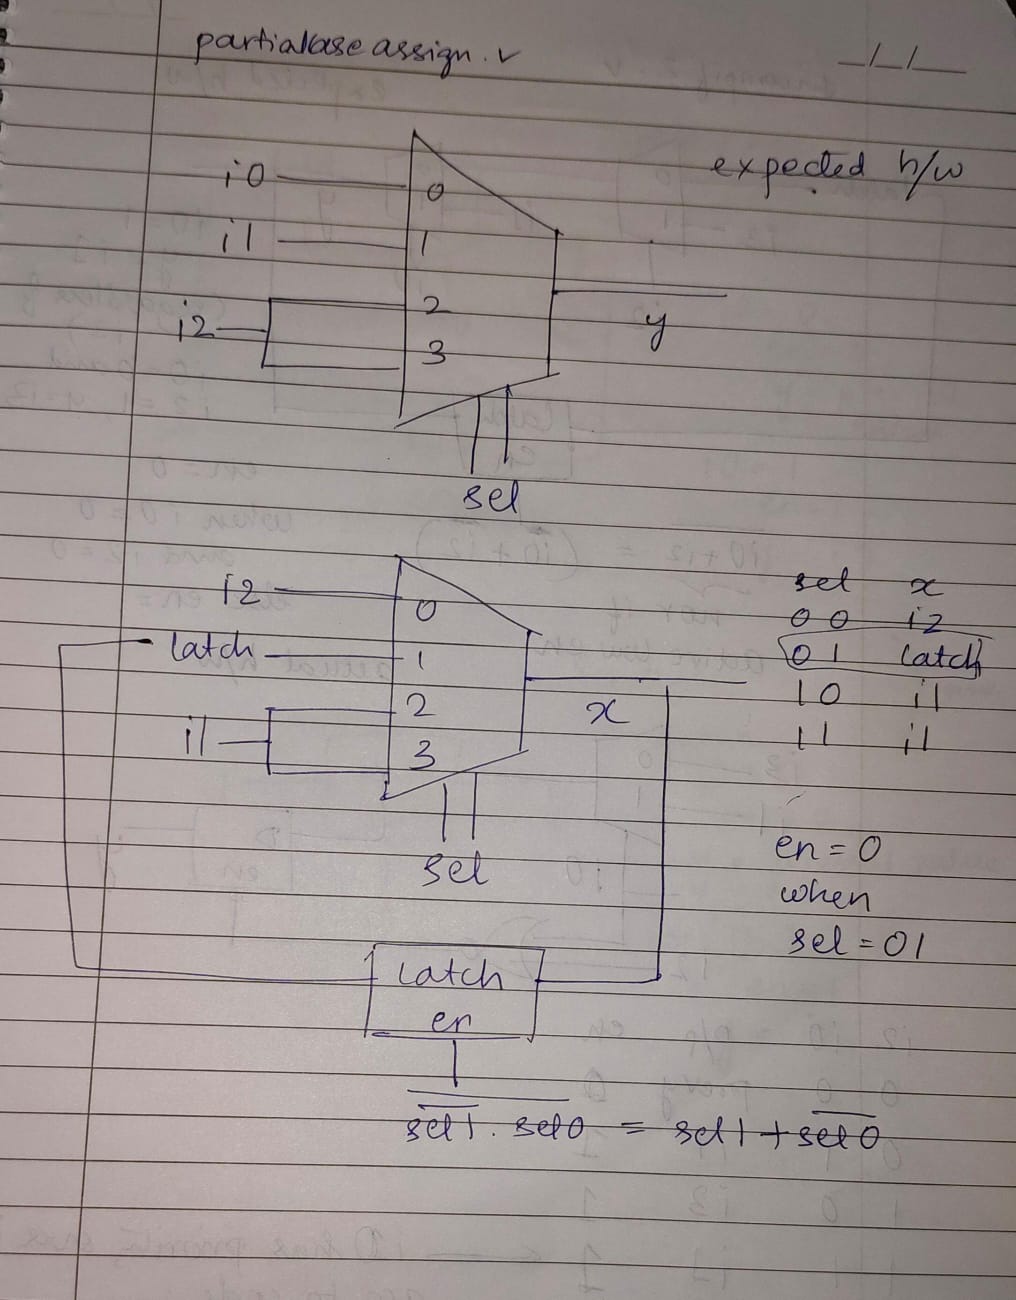 partialcase assign.v
expected h/w
i0 0
i1 1
i2 2
3
y
sel
i2 0
latch 1
i1 2
3
x
sel
sel x
00 i2
01 latch
10 i1
11 i1
en=0
when
sel=01
latch
en
s̅e̅l̅1̅.sel0 = sel1+s̅e̅l̅0̅